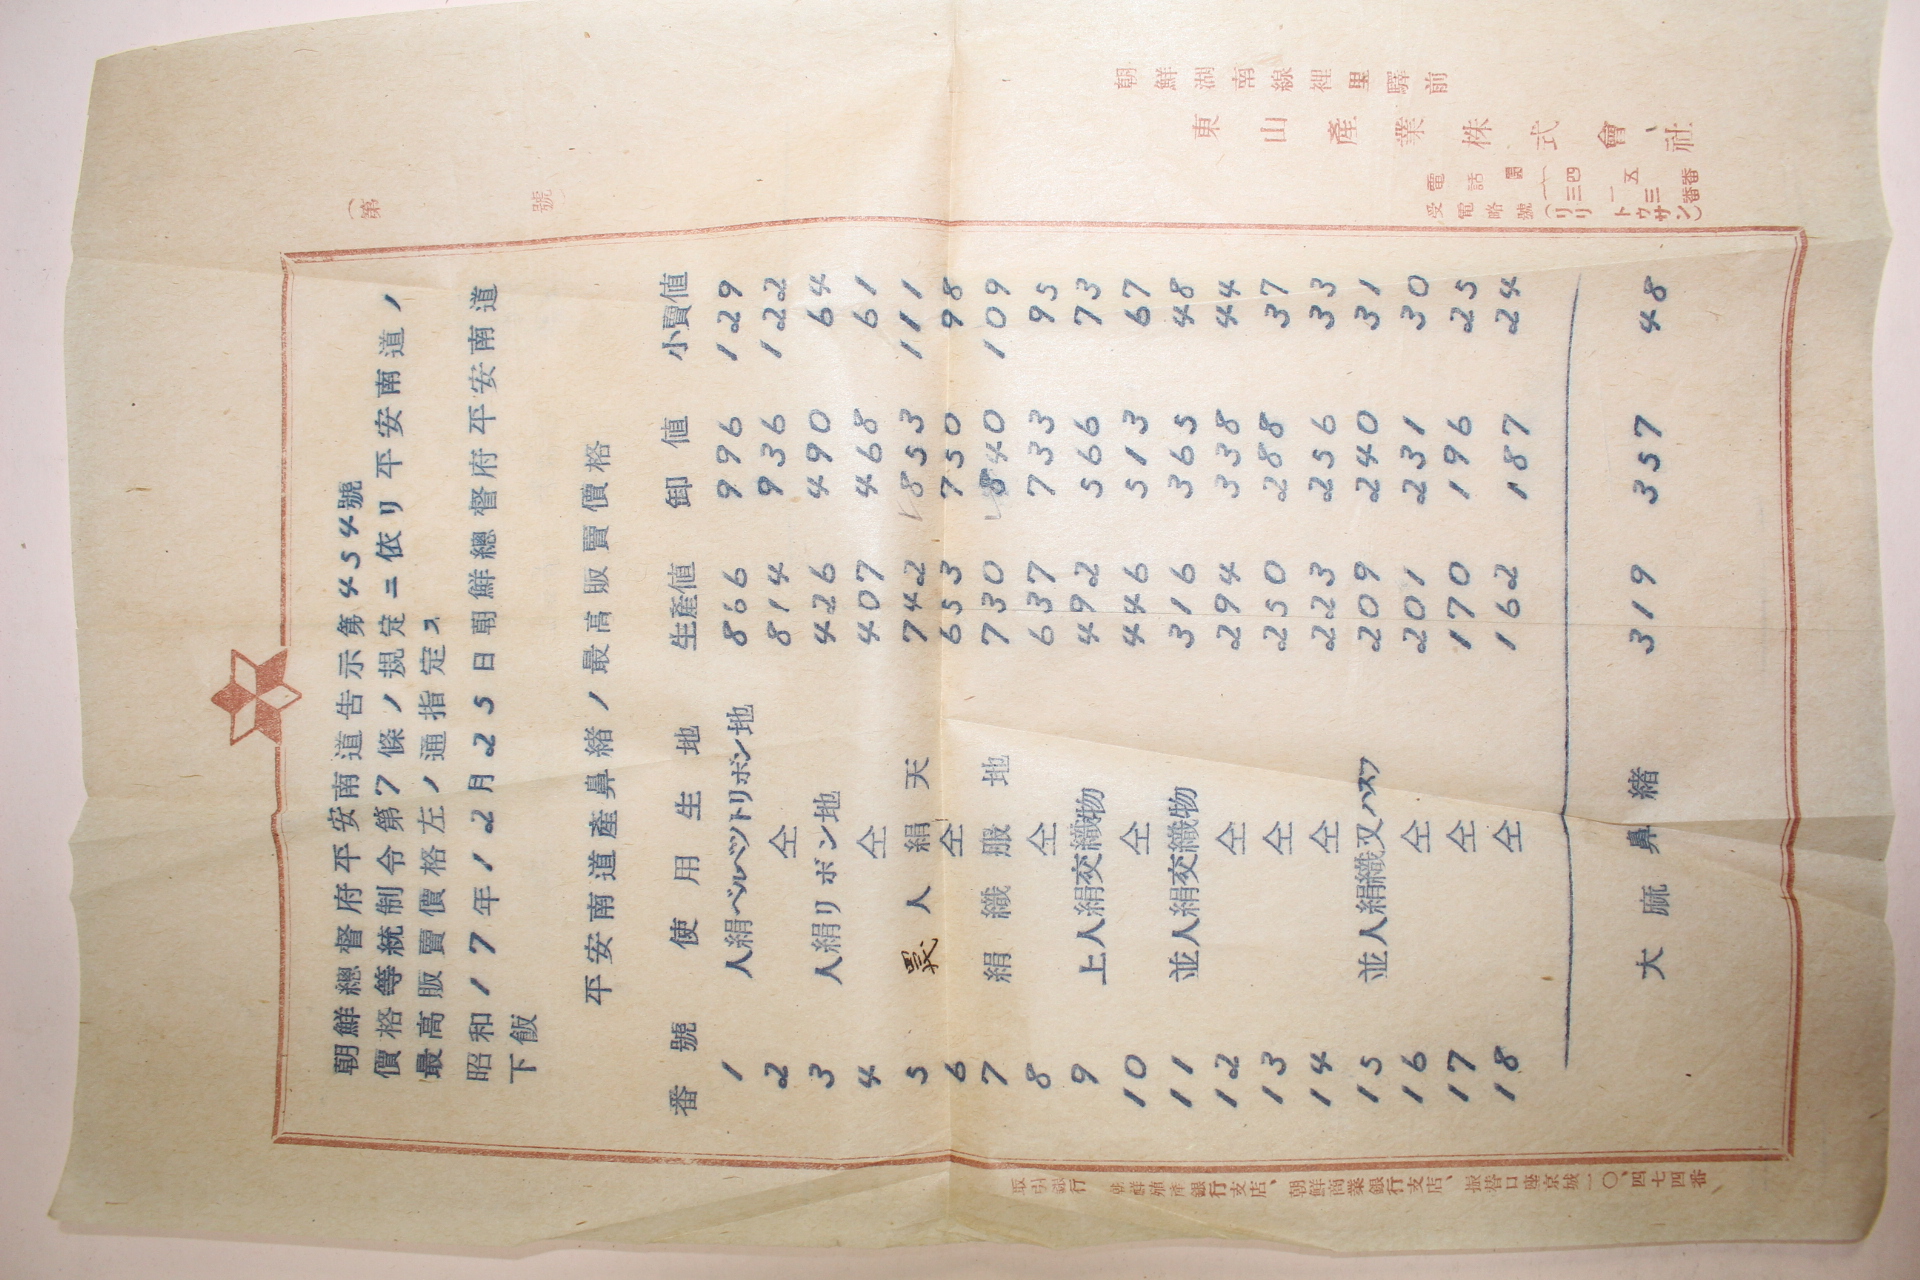 朝鮮總督府平安南道告示第454號
價格等統制令第7條ノ規定ニ依リ平安南道ノ
最高販賣價格左ノ通指定ス
昭和17年12月25日 朝鮮總督府平安南道
下飯
平安南道產鼻緒ノ最高販賣價格
番號 使用生地 生產値 卸値 小賣値
1 人絹ベルベットリボン地 866 996 129
2 仝 814 936 122
3 人絹リボン地 426 490 64
4 仝 407 468 61
5 人絹天 742 853 111
6 仝 653 750 98
7 絹織服地 730 840 109
8 仝 637 733 95
9 上人絹交織物 492 566 73
10 仝 446 513 67
11 並人絹交織物 316 365 48
12 仝 294 338 44
13 仝 250 288 37
14 仝 223 256 33
15 並人絹織又ハスフ 209 240 31
16 仝 201 231 30
17 仝 170 196 25
18 仝 162 187 24
大麻鼻緒 319 357 48
(第 號
朝鮮湖南線裡里驛前
東山產業株式會社
電話
受電略號
取引銀行 朝鮮殖產銀行支店、朝鮮商業銀行支店、振替口座京城一〇、四七四番